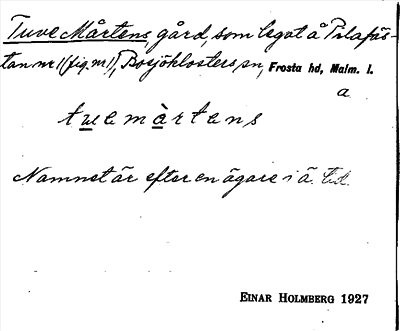 Tuve Mårtens gård, som legat å Pilafäs-
tan nr 1 (fig. nr 1), Bosjöklosters sn, Frosta hd, Malm. l.
a
t w e m à r t e n s
Namnet är efter en ägare i ä. tid.
EINAR HOLMBERG 1927